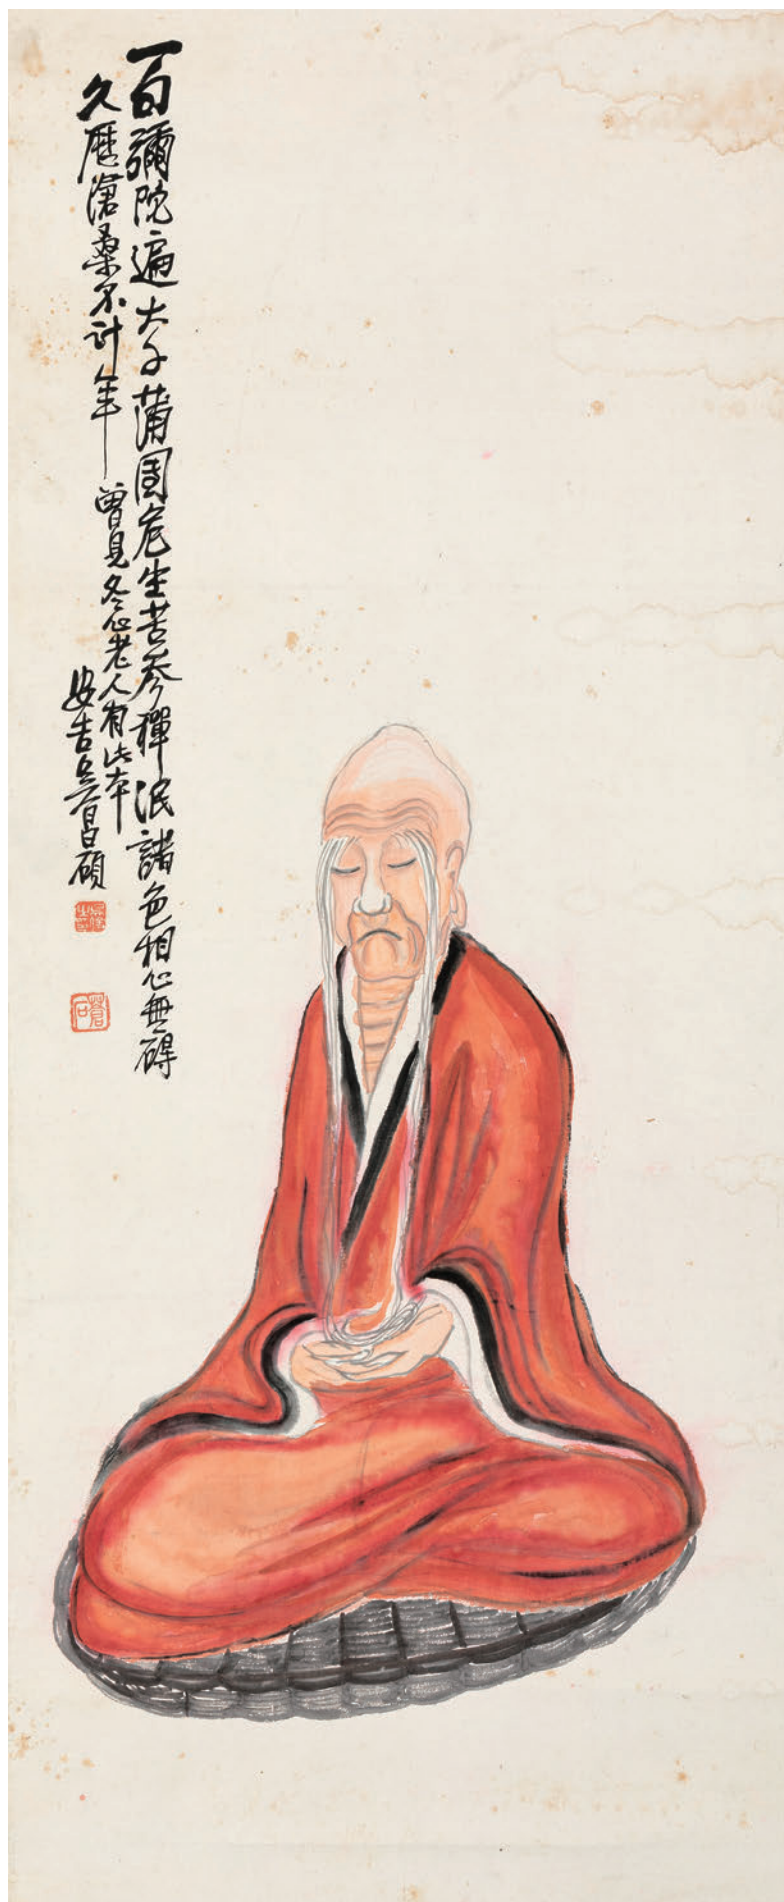 一句彌陀遍大千蒲團危坐苦參禪泯諸色相心無碍
久歷滄桑不計年 曾見冬心老人有此本
安吉吳昌碩
吳俊之印
蒼石